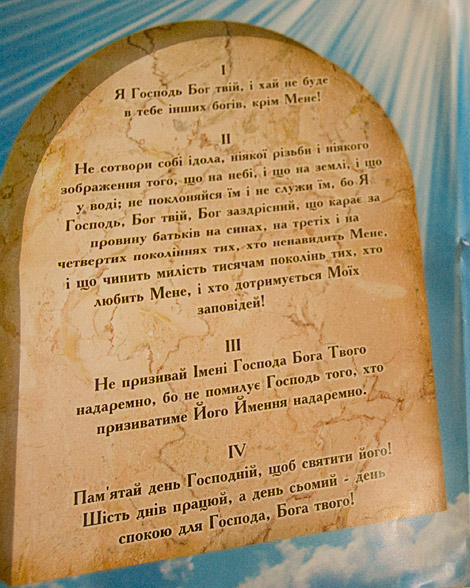 I
Я Господь Бог твій, і хай не буде
в тебе інших богів, крім Мене!
II
Не сотвори собі ідола, ніякої різьби і ніякого
зображення того, що на небі, і що на землі, і що
у воді; не поклоняйся їм і не служи їм, бо Я
Господь, Бог твій, Бог заздрісний, що карає за
провину батьків на синах, на третіх і на
четвертих поколіннях тих, хто ненавидить Мене,
і що чинить милість тисячам поколінь тих, хто
любить Мене, і хто дотримується Моїх
заповідей!
III
Не призивай Імені Господа Бога Твого
надаремно, бо не помилує Господь того, хто
призиватиме Його Ймення надаремно.
IV
Пам'ятай день Господній, щоб святити його!
Шість днів працюй, а день сьомий - день
спокою для Господа, Бога твого!